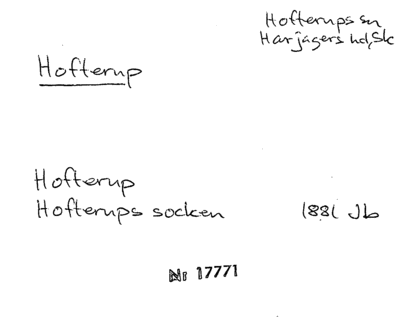 Hofterups sn
Harjagers hd, Sk
Hofterup
Hofterup
Hofterups socken 1881 Jb
Nr 17771